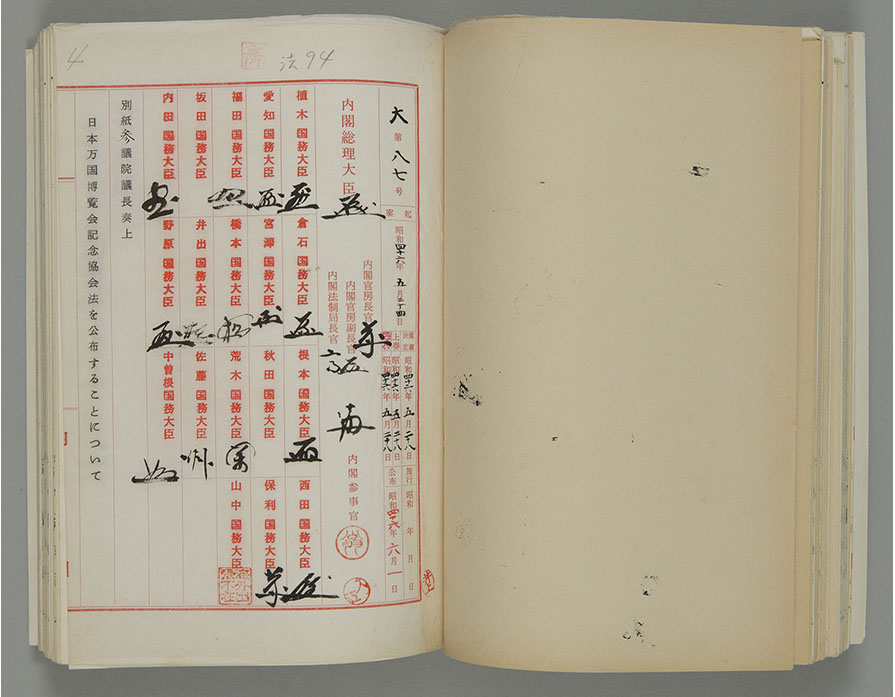 4
法94
大第八七号
起案
昭和四十六年五月二十四日
閣議決定
昭和四十六年五月二十八日
上奏
昭和四十六年五月二十八日
施行
昭和 年 月 日
公布
昭和四十六年六月一日
内閣総理大臣
内閣官房長官
内閣官房副長官
内閣法制局長官
内閣参事官
植木国務大臣
倉石国務大臣
根本国務大臣
西田国務大臣
愛知国務大臣
宮澤国務大臣
秋田国務大臣
保利国務大臣
福田国務大臣
橋本国務大臣
荒木国務大臣
山中国務大臣
坂田国務大臣
井出国務大臣
佐藤国務大臣
内田国務大臣
野原国務大臣
中曽根国務大臣
別紙参議院議長奏上
日本万国博覧会記念協会法を公布することについて